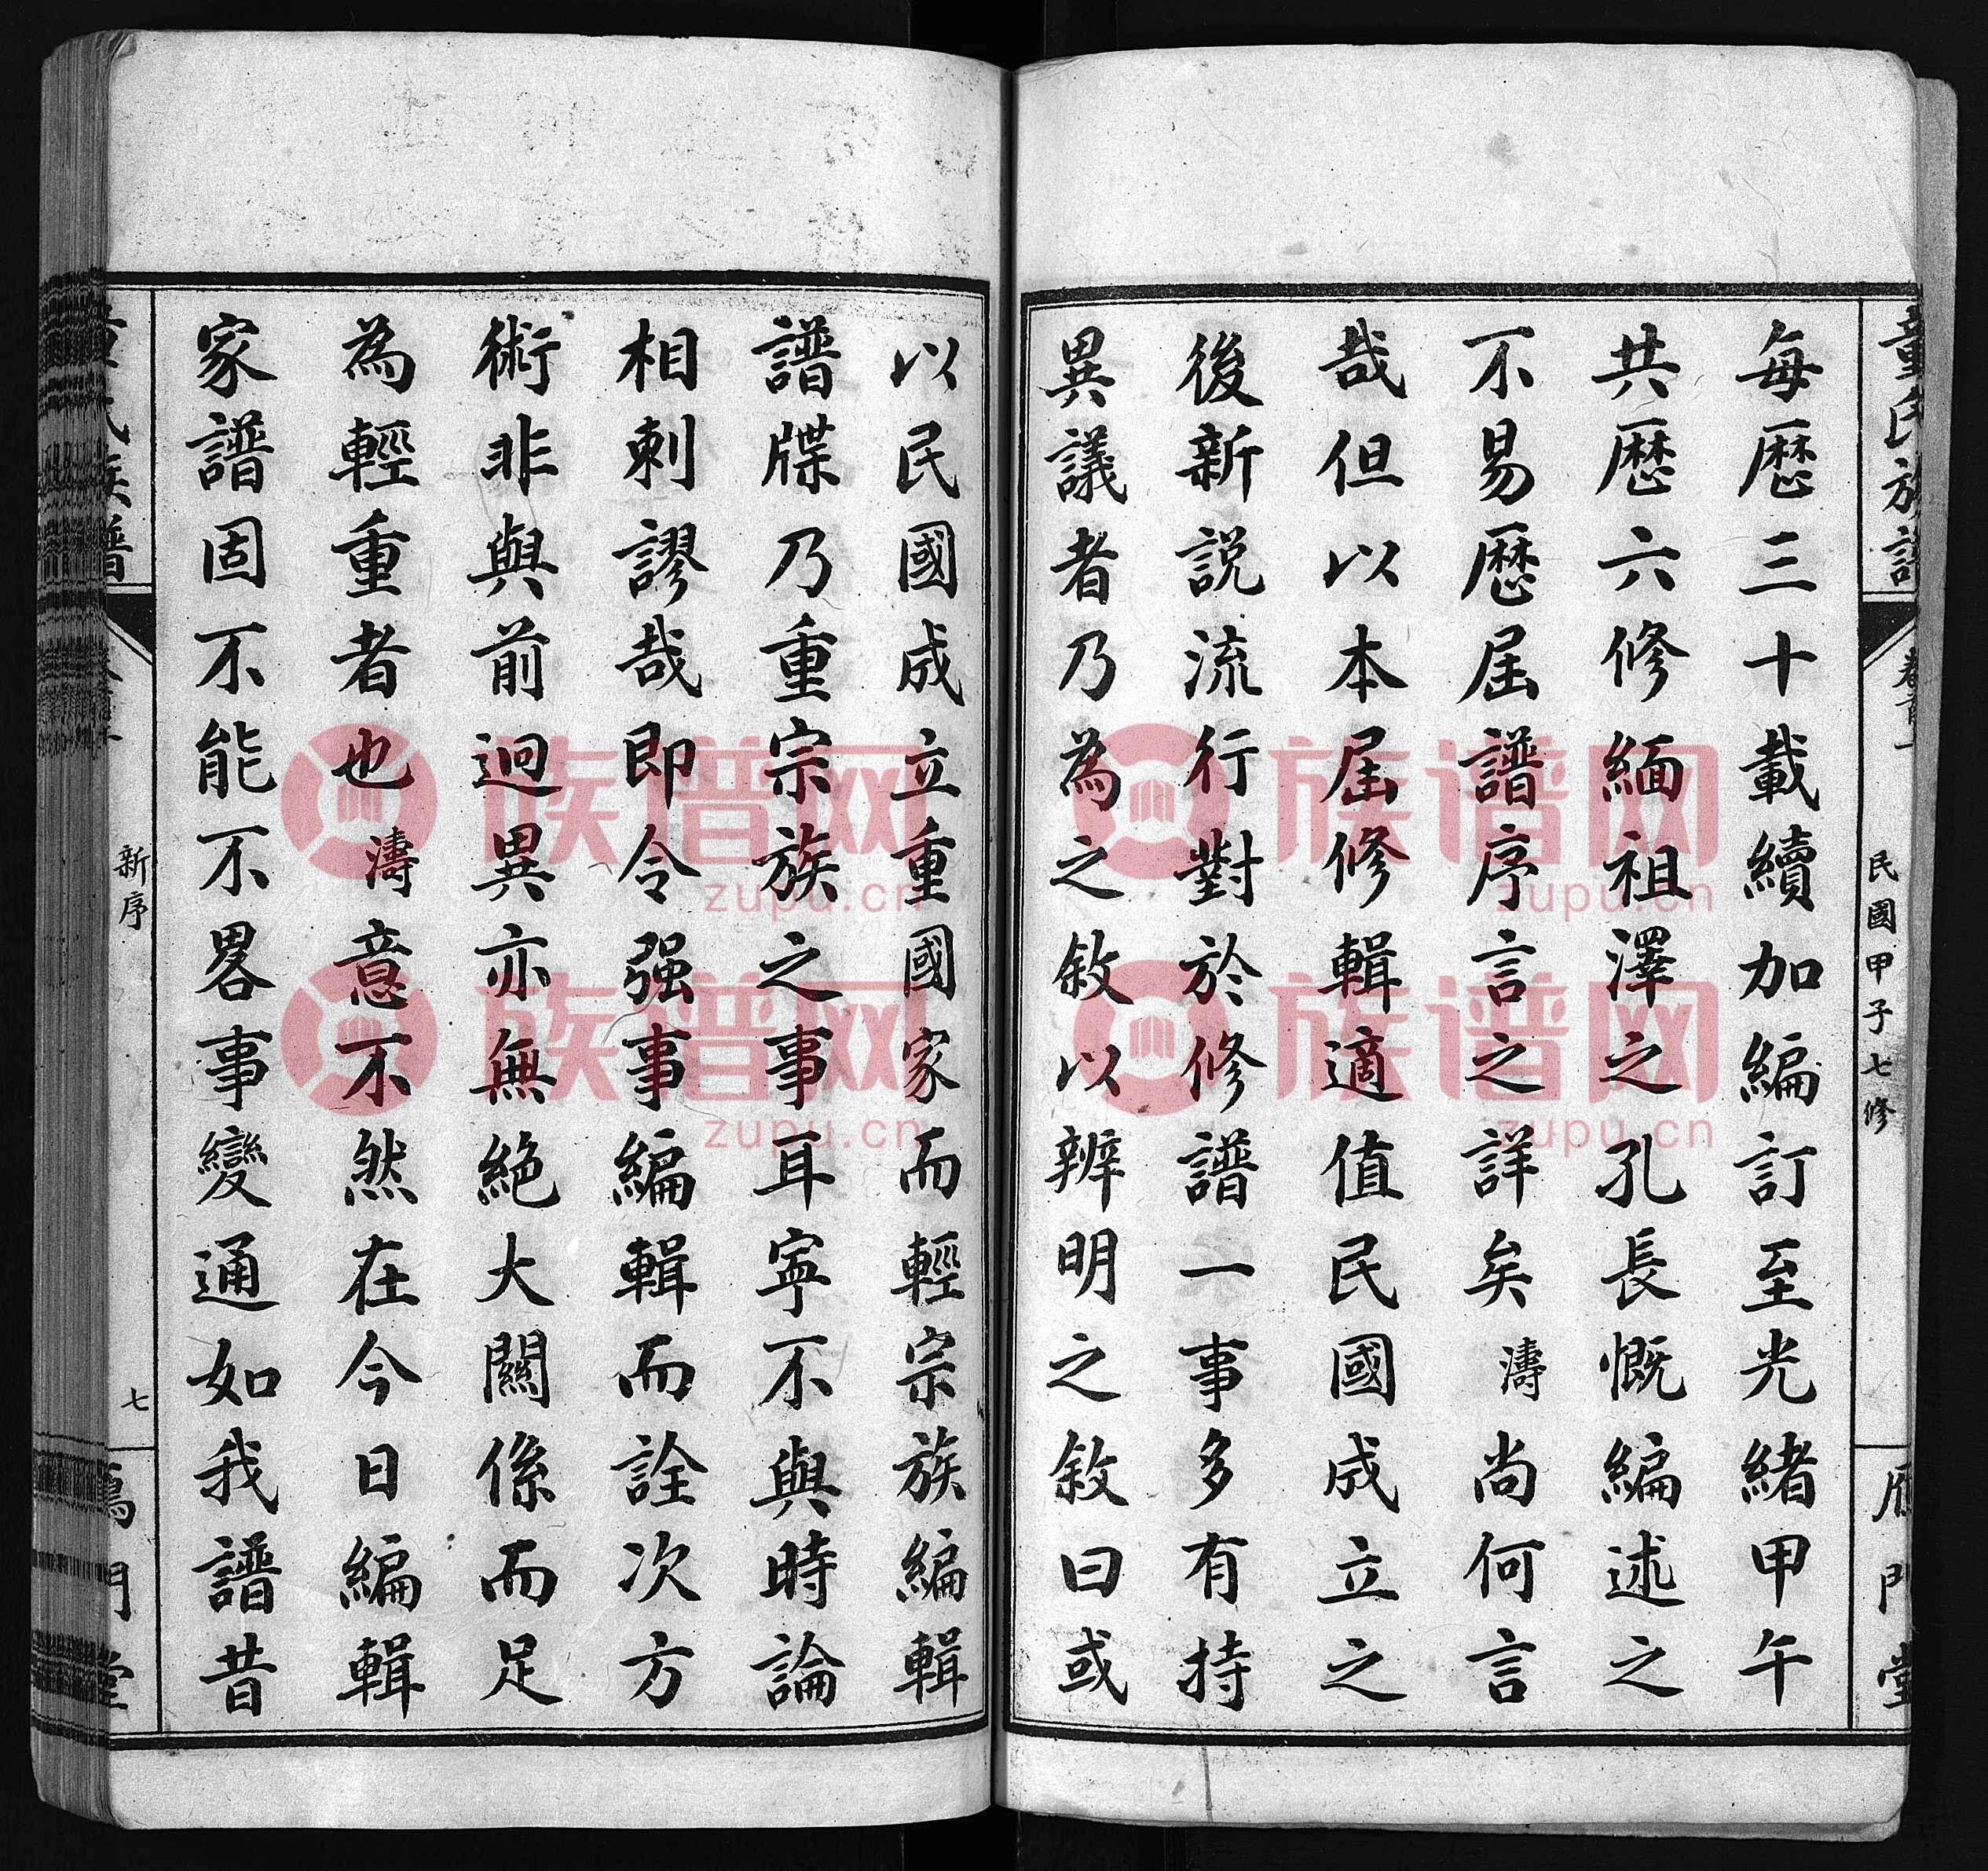 童氏族譜
卷首一
民國甲子七修
雁門堂
每歷三十載續加編訂至光緒甲午
共歷六修緬祖澤之孔長慨編述之
不易歷屆譜序言之詳矣濤尚何言
哉但以本屆修輯適值民國成立之
後新説流行對於修譜一事多有持
異議者乃為之敘以辨明之敘曰或
以民國成立重國家而輕宗族編輯
譜牒乃重宗族之事耳寜不與時論
相刺謬哉即令强事編輯而詮次方
術非與前迥異亦無絶大關係而足
為輕重者也濤意不然在今日編輯
家譜固不能不畧事變通如我譜昔
新序
七
門堂
族谱网
zupu.cn
族谱网
zupu.cn
族谱网
zupu.cn
族谱网
zupu.cn